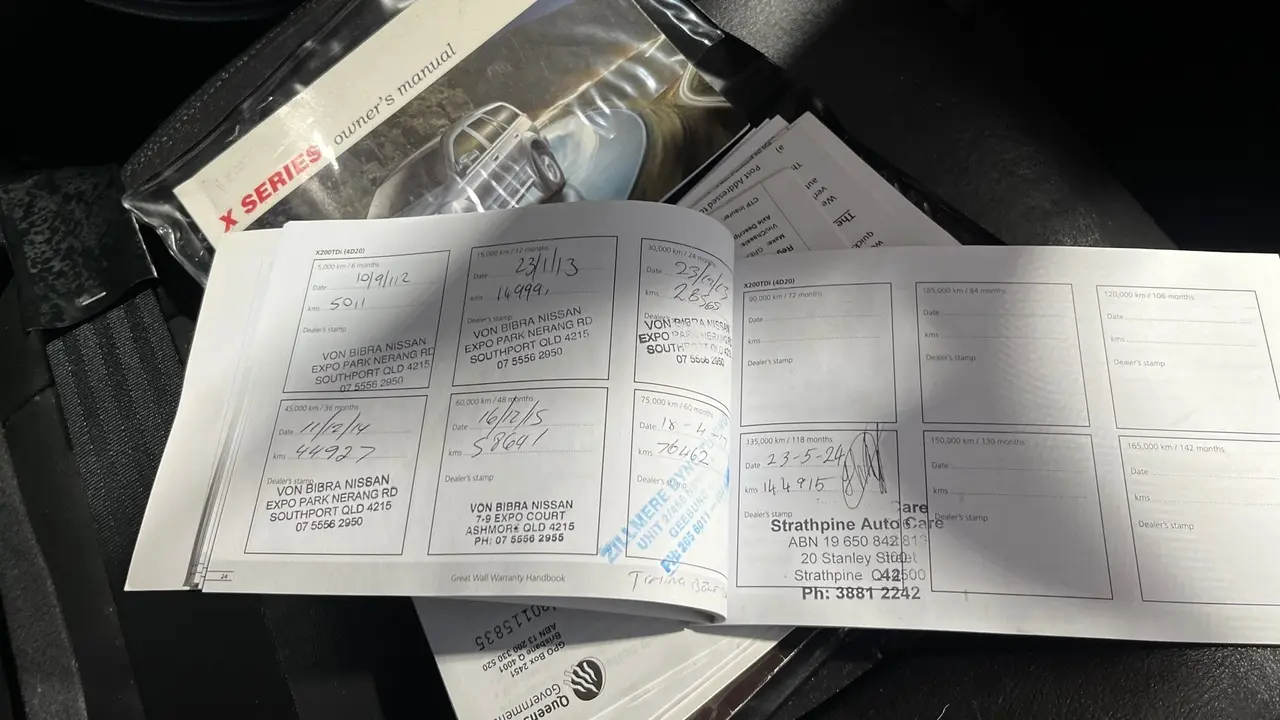 X SERIES owner's manual
Post Addressed to
CTP Insurer
The
X200TDi (4D20)
5,000 km / 6 months
Date 10/9/112
kms 5011
Dealer's stamp
VON BIBRA NISSAN
EXPO PARK NERANG RD
SOUTHPORT QLD 4215
07 5556 2950
15,000 km / 12 months
Date 23/1/13
kms 14999
Dealer's stamp
VON BIBRA NISSAN
EXPO PARK NERANG RD
SOUTHPORT QLD 4215
07 5556 2950
30,000 km / 24 months
Date
kms 28565
Dealer's
VON BIBRA NISSAN
EXPO PARK NERANG
SOUTHPORT
07 5556 2950
45,000 km / 36 months
Date 11/12/14
kms 44927
Dealer's stamp
VON BIBRA NISSAN
EXPO PARK NERANG RD
SOUTHPORT QLD 4215
07 5556 2950
60,000 km / 48 months
Date 16/12/15
kms 58641
Dealer's stamp
VON BIBRA NISSAN
7-9 EXPO COURT
ASHMORE QLD 4215
PH: 07 5556 2955
75,000 km / 60 months
Date 18-4-
kms 76462
Dealer's
ZILLMERE
UNIT 2/
GEEBUNG
24
Great Wall Warranty Handbook
Timing Belt
X200TDi (4D20)
90,000 km / 72 months
Date
kms
Dealer's stamp
105,000 km / 84 months
Date
kms
Dealer's stamp
120,000 km / 106 months
Date
kms
Dealer's stamp
135,000 km / 118 months
Date 23-5-24
kms 144915
Dealer's stamp
Strathpine Auto Care
ABN 19 650 842 813
20 Stanley Street
Strathpine Q 4500
Ph: 3881 2242
150,000 km / 130 months
Date
kms
Dealer's stamp
165,000 km / 142 months
Date
kms
Dealer's stamp
GPO Box 2451
Brisbane Q 4001
ABN 13 200 330 520
Queens
Government